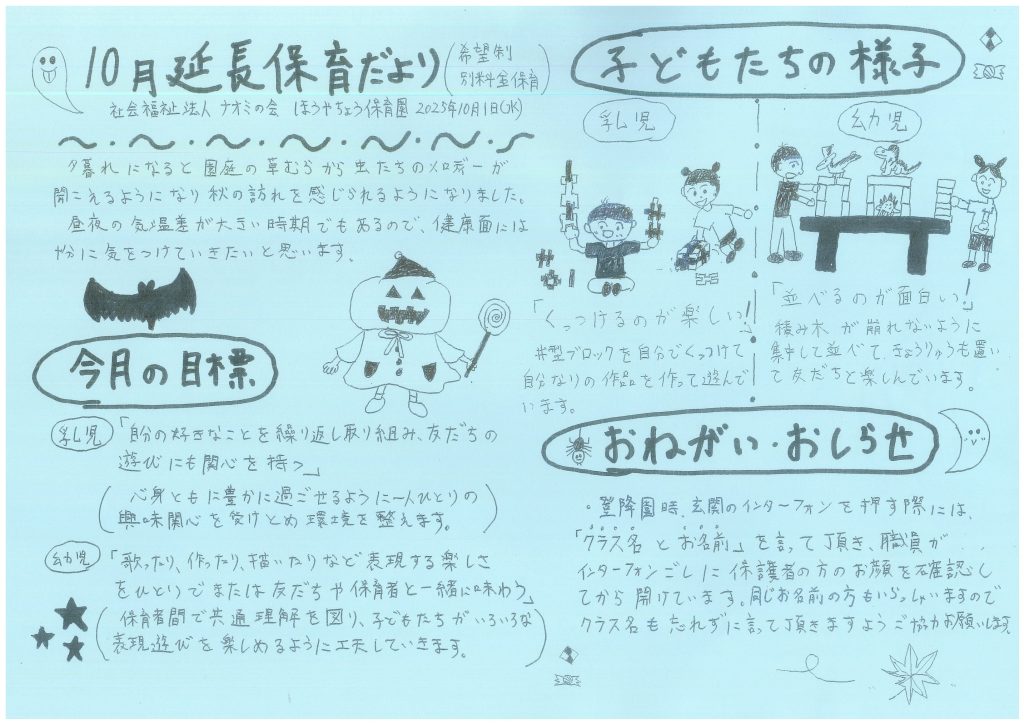 10月延長保育だより
(希望制
別料金保育)
社会福祉法人 ナオミの会 ほうやちょう保育園 2025年10月1日(水)
夕暮れになると園庭の草むらから虫たちのメロディーが
聞こえるようになり秋の訪れを感じられるようになりました。
昼夜の気温差が大きい時期でもあるので、健康面には
十分に気をつけていきたいと思います。
今月の目標
乳児
「自分の好きなことを繰り返し取り組み、友だちの
遊びにも関心を持つ」
(心身ともに豊かに過ごせるように一人ひとりの
興味関心を受けとめ環境を整えます。)
幼児
「歌ったり、作ったり、描いたりなど表現する楽しさ
をひとりでまたは友だちや保育者と一緒に味わう」
(保育者間で共通理解を図り、子どもたちがいろいろな
表現遊びを楽しめるように工夫していきます。)
子どもたちの様子
乳児
「くっつけるのが楽しい!」
井型ブロックを自分でくっつけて
自分なりの作品を作って遊んで
います。
幼児
「並べるのが面白い!」
積み木が崩れないように
集中して並べて、きょうりゅうも置い
て友だちと楽しんでいます。
おねがい・おしらせ
・登降園時、玄関のインターフォンを押す際には、
「クラス名とお名前」を言って頂き、職員が
インターフォンごしに保護者の方のお顔を確認し
てから開けています。同じお名前の方もいらっしゃいますので
クラス名も忘れずに言って頂きますようご協力お願いします。